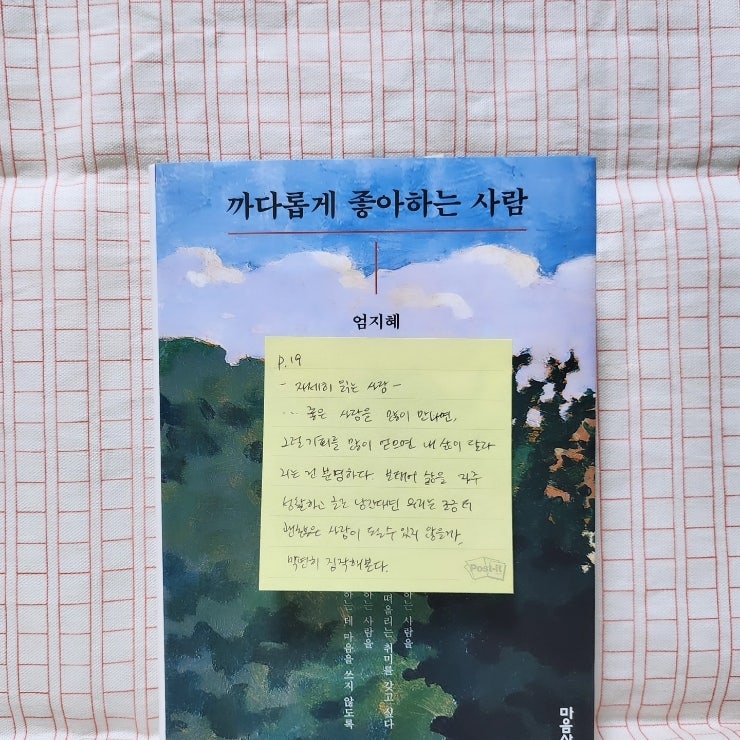 까다롭게 좋아하는 사람
엄지혜
P.19
- 자세히 읽는 사람 -
... 좋은 사람을 많이 만나면,
그럴 기회를 많이 얻으면 내 삶이 달라
지는 건 분명하다. 보태어 삶을 자주
성찰하고 글로 남긴다면 우리는 조금 더
괜찮은 사람이 될 수 있지 않을까,
막연히 짐작해본다.
Post-it
하는 사람을
떠올리는 취미를 갖고 싶다
하는 사람을
하는 데 마음을 쓰지 않도록
마음산